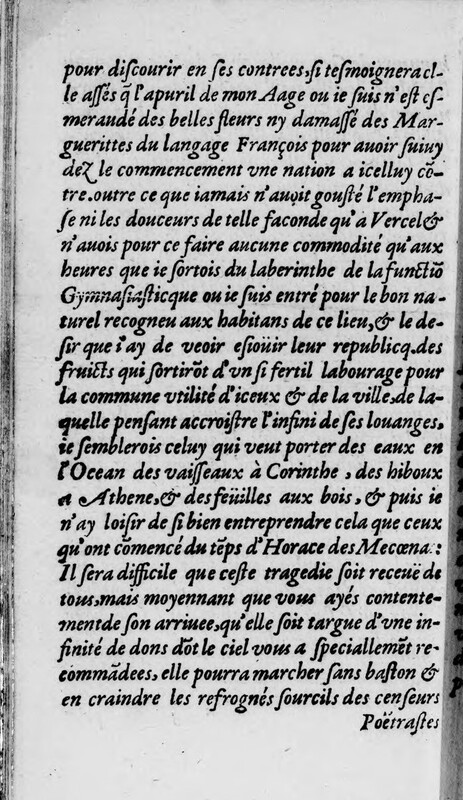 pour diſcourir en ſes contrees,ſi teſmoignera cl-
le aſſés q̃ l'apuril de mon Aage ou ie ſuis n'eſt eſ-
meraudé des belles fleurs ny damaſſé des Mar-
guerittes du langage François pour auoir ſuiuy
deZ le commencement vne nation a icelluy cõ-
tre.outre ce que iamais n'auoit gouſté l'empha-
ſe ni les douceurs de telle faconde qu'a Vercel&
n'auois pour ce faire aucune commodité qu'aux
heures que ie ſortois du laberinthe de la functiõ
Gymnaſiaſticque ou ie ſuis entré pour le bon na-
turel recogneu aux habitans de ce lieu,& le de-
ſir que i'ay de veoir eſioüir leur republicq.des
fruicts qui ſortirõt d'vn ſi fertil labourage pour
la commune vtilité d'iceux & de la ville,de la-
quelle penſant accroiſtre l'infini de ſes louanges,
ie ſemblerois celuy qui veut porter des eaux en
l'Ocean des vaiſſeaux à Corinthe , des hiboux
a Athene,& des feüilles aux bois , & puis ie
n'ay loiſir de ſi bien entreprendre cela que ceux
qu'ont cõmencé du tẽps d'Horace des Mecœna.:
Il ſera difficile que ceſte tragedie ſoit receuë de
tous,mais moyennant que vous ayés contente-
ment de ſon arriuee,qu'elle ſoit targue d'vne in-
finité de dons dõt le ciel vous a ſpeciallemẽt re-
commãdees, elle pourra marcher ſans baſton &
en craindre les refrognés ſourcils des cenſeurs
Poëtraſtes